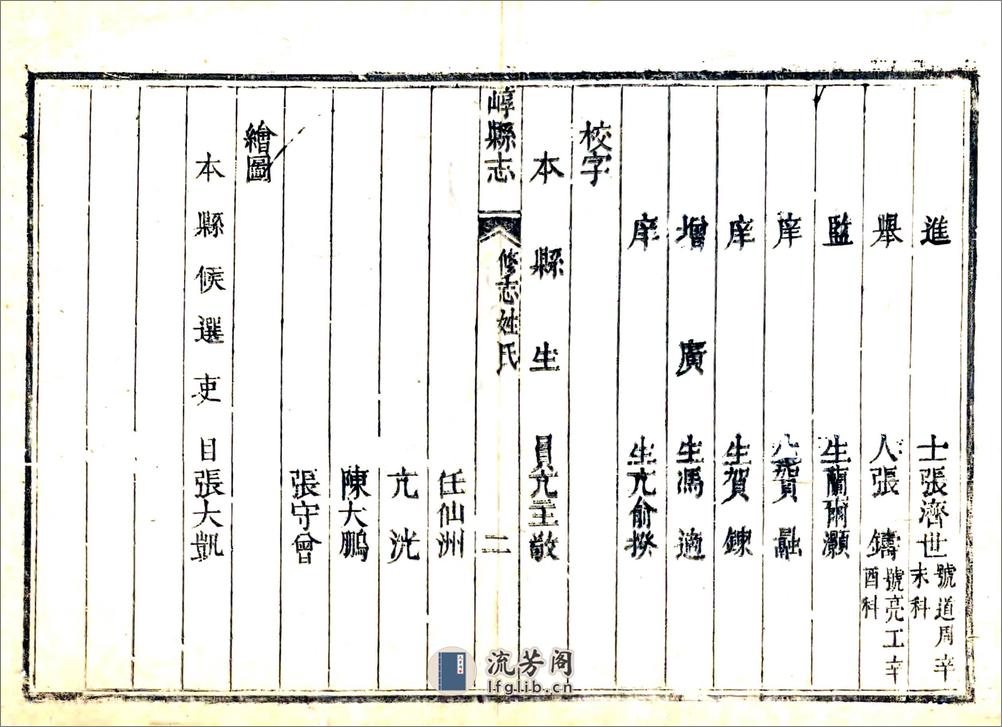 進士張濟世號道周辛未科
舉人張鑄號亮工辛酉科
監生蘭爾灝
庠生賀融
庠生賀鍊
增廣生馮適
庠生亢俞揆
校字
本縣生員亢主敬
崞縣志 修志姓氏 二
任仙洲
亢洸
陳大鵬
張守曾
繪圖
本縣候選吏目張大凱
流芳阁
lfglib.cn